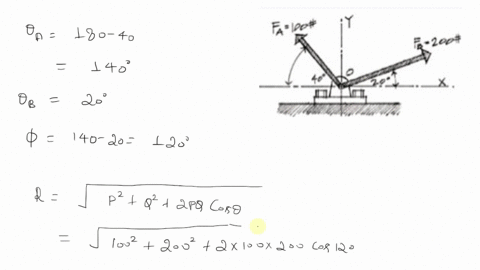 θA = 180-40
= 140°
θB = 20°
ϕ = 140-20 = 120°
R = √P² + Q² + 2PQ Cosθ
= √100² + 200² + 2×100×200 cos 120
FA=100#
Y
FB=200#
40°
O
20°
X